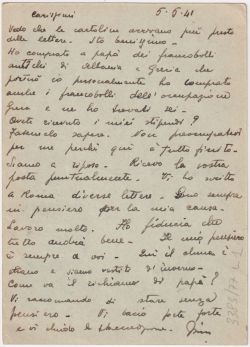 Carissimi 5-5-41
Vedo che le cartoline arrivano più presto
delle lettere. Sto benissimo.
Ho comprato a papà dei francobolli
antichi di Albania e Grecia che
potrò io personalmente ho comprato
anche i francobolli dell'occupazione
Avete ricevuto i miei stipendi?
Fatemelo sapere. Non preoccupatevi
per me perché qui è tutto finito.
Siamo a riposo. Ricevo la vostra
posta puntualmente. Vi ho scritto
a Roma diverse lettere. Sono sempre
in pensiero per la mia causa.
Lavoro molto. Ho fiducia che
tutto andrà bene. Il mio pensiero
è sempre a voi. Qui il clima è
strano e siamo vestiti d'inverno.
Come va il richiamo di papà?
Vi raccomando di stare senza
pensiero. Vi bacio forte forte
e vi chiedo la benedizione.